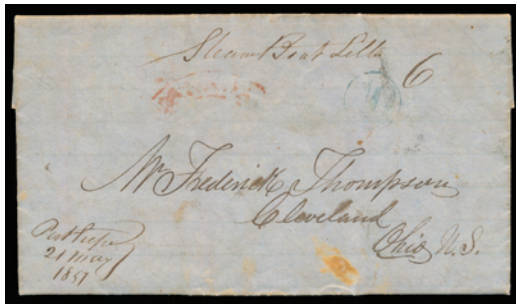 Steam Boat Letter
6
Mr Frederick Thompson
Cleveland
Ohio U.S.
Port Hope
21 May